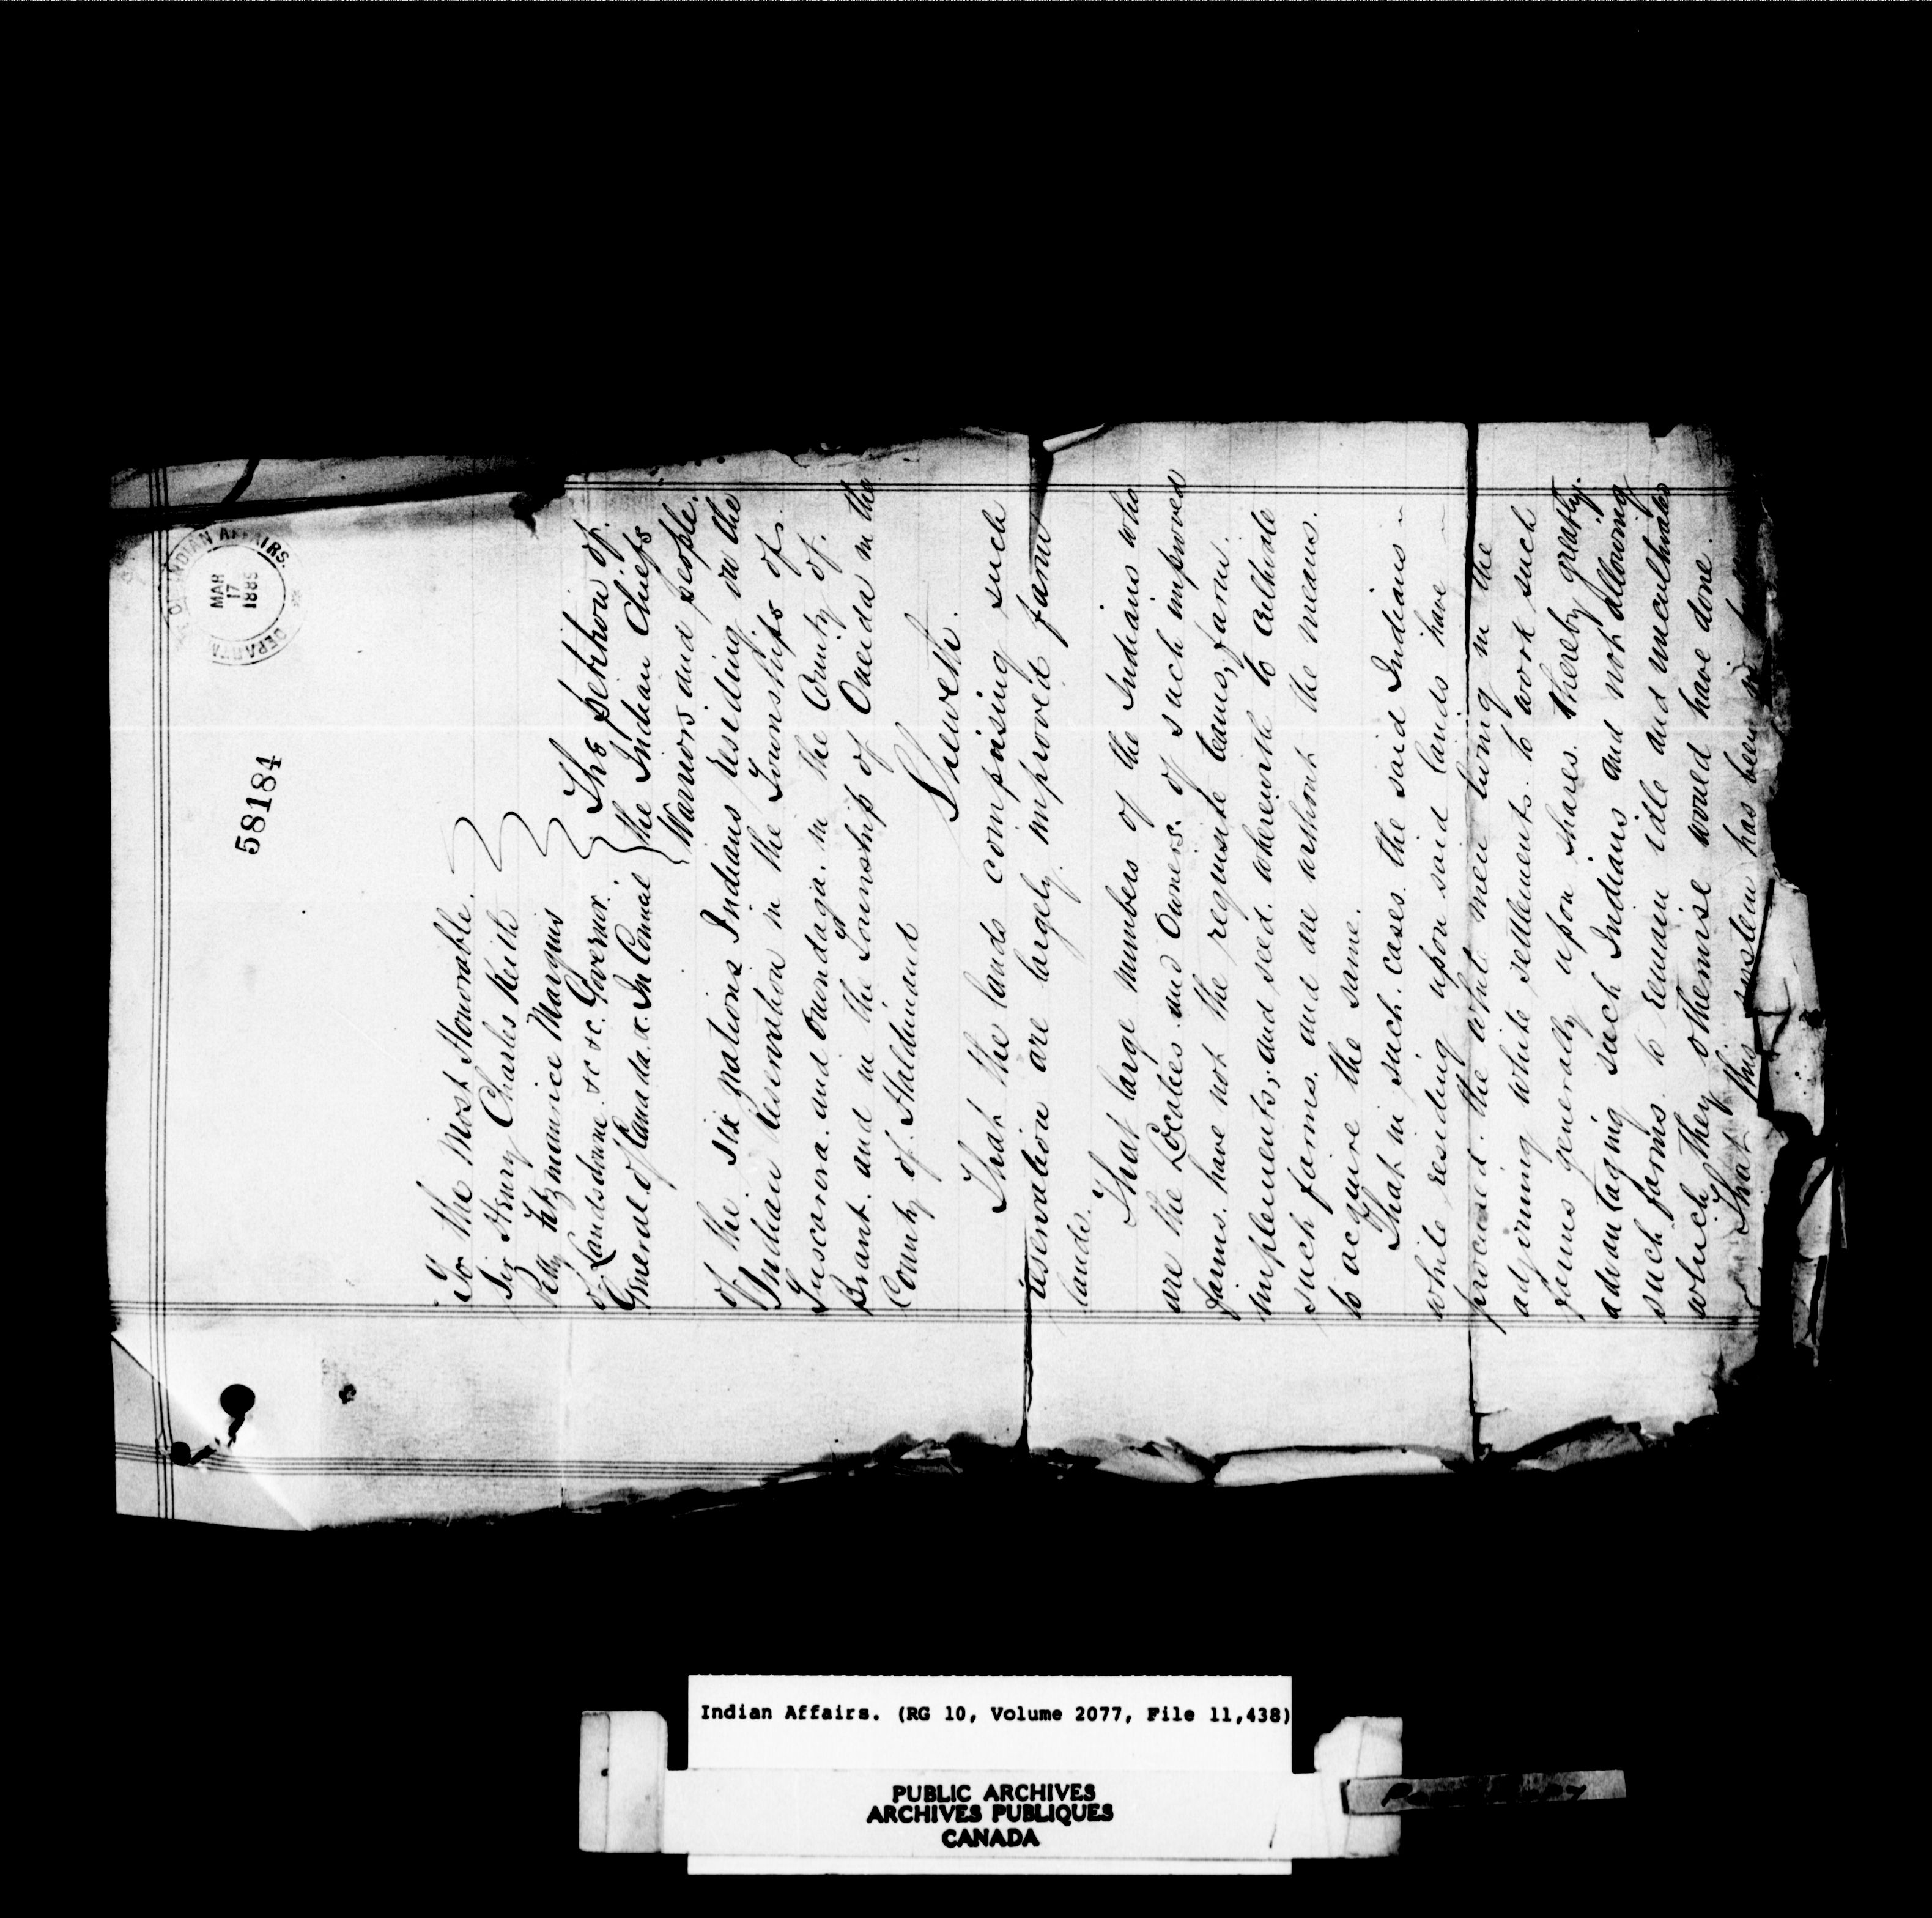 DEPARTMENT OF INDIAN AFFAIRS.
MAR
17
1885
58184
To the Most Honorable.
Sir Henry Charles Keith
Petty Fitzmaurice Marquis
of Landsdowne &c &c. Governor.
General of Canada. &. In Council
The petition of.
the Indian Chiefs
Warriors and people.
of the. six nations Indians residing on the
Indian Reservation in the Townships of.
Tuscarora. and Onondaga. in the County of.
Brant. and in the Township of Oneida in the
County of. Haldimand
Sheweth.
That the lands comprising such
reservation are largely. improved farm
lands.
That large numbers of the Indians who
are the Locatees and Owners. of such improved
farms. have not the requisite teams, farm.
implements, and seed. wherewith to cultivate
such farms. and are without the means.
to acquire the same.
That in such. cases. the said Indians
while residing upon said lands have
procured. the white men living in the
adjoining white settlements. to work such
farms generally upon shares. thereby greatly.
advantaging such Indians and not allowing
such farms. to remain idle and uncultivated
which they otherwise would have done.
That this system has been in
Indian Affairs. (RG 10, Volume 2077, File 11,438)
PUBLIC ARCHIVES
ARCHIVES PUBLIQUES
CANADA